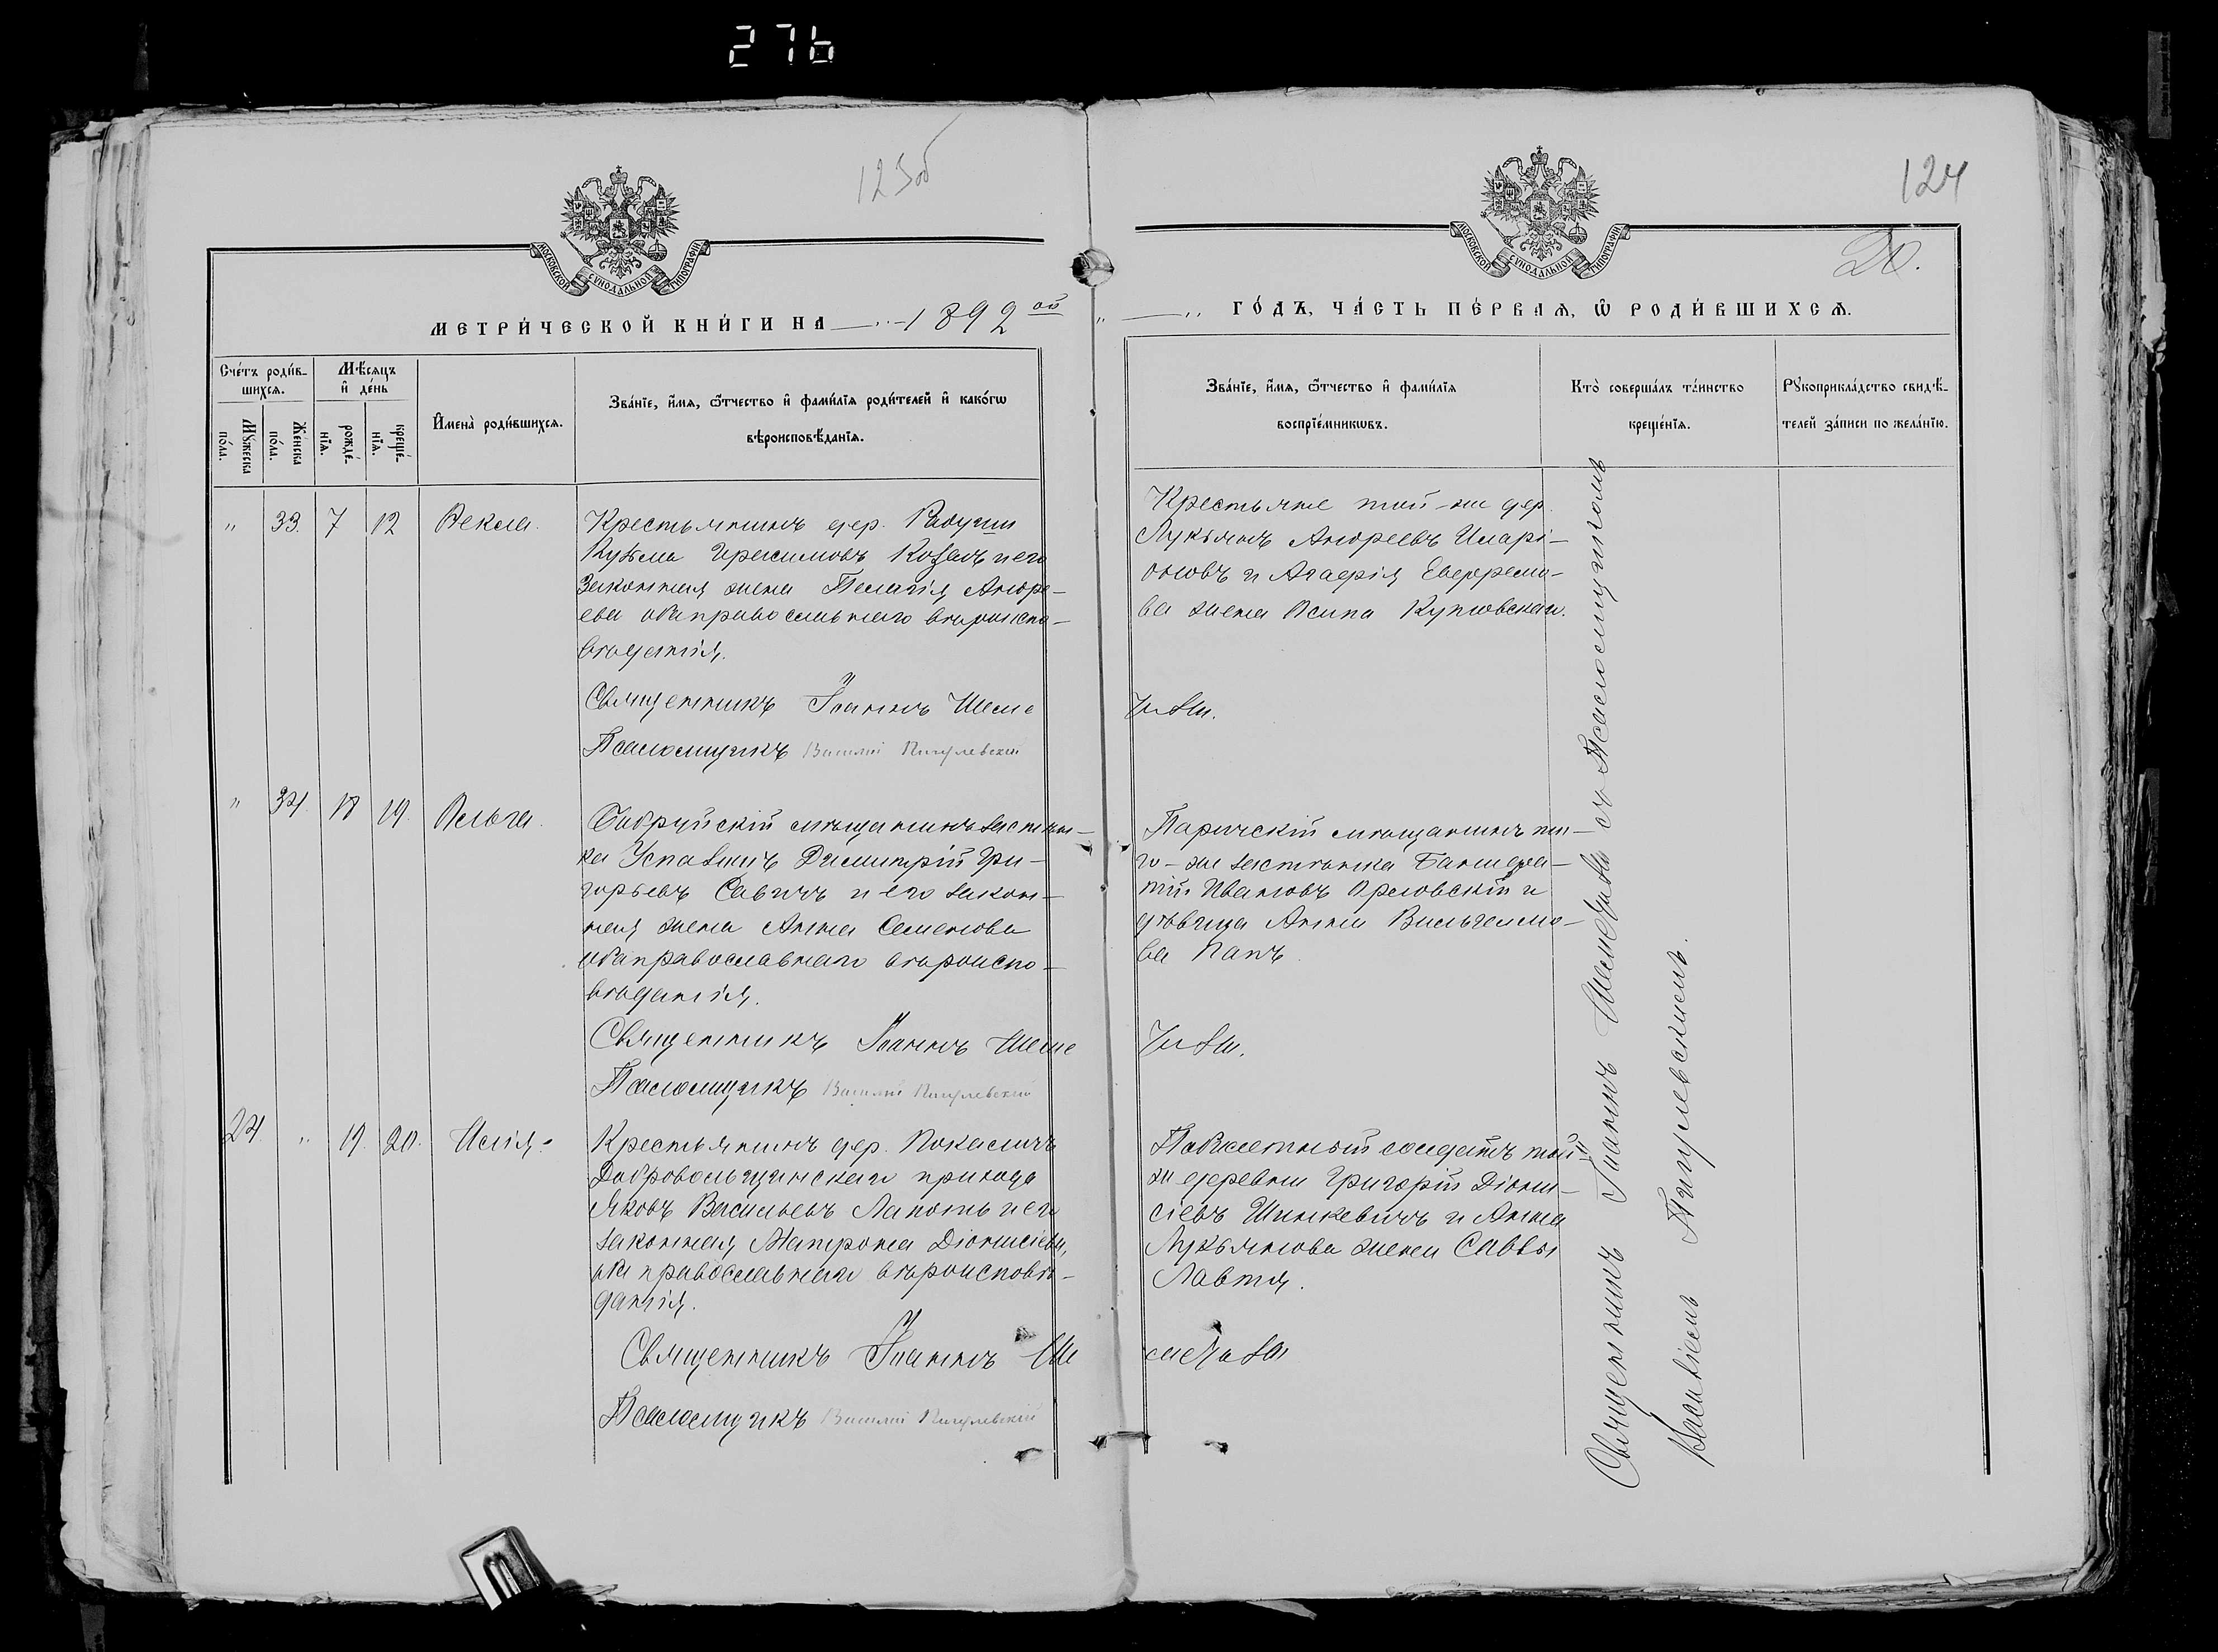 276
123об
124
20.
МОСКОВСКОЙ СУНОДАЛЬНОЙ ТИПОГРАФІИ
МОСКОВСКОЙ СУНОДАЛЬНОЙ ТИПОГРАФІИ
МЕТРИ́ЧЕСКОЙ КНИ́ГИ НА 1892 ой
ГО́ДЪ, ЧА́СТЬ ПЕ́РВАѦ, Ѡ РОДИ́ВШИХСѦ.
Сче́тъ роди́в-
шихсѧ.
Мꙋжеска по́ла.
Же́нска по́ла.
Мѣ́сѧцъ и҆ де́нь
рожде́-нїѧ.
креще́-нїѧ.
И҆мена̀ роди́вшихсѧ.
Зва́нїе, и҆́мѧ, ѻ҆́тчество и҆ фами́лїѧ роди́телей и҆ како́гѡ
вѣроисповѣ́данїѧ.
Зва́нїе, и҆́мѧ, ѻ҆́тчество и҆ фами́лїѧ
воспрїе́мникѡвъ.
Кто̀ соверша́лъ та́инство
креще́нїѧ.
Рꙋкоприкла́дство свидѣ́-
телей за́писи по жела́нїю.
" 33. 7 12 Ѳекла. Крестьянинъ дер.
Кузьма Герасимовъ Козелъ и его
законная жена Пелагія Андре-
ева оба православнаго вѣроиспо-
вѣданія.
Священникъ Іоаннъ Шеме
Псаломщикъ Василій Пигулевскій
Крестьяне той-же дер.
Лукьянъ Андреевъ Иларі-
оновъ и Агафія Евфремо-
ва жена Осипа
" 34 18 19. Ольга. Бобруйскій мѣщанинъ застѣн-
ка Димитрій Гри-
горьевъ Савичъ и его закон-
ная жена Анна Семенова
оба православнаго вѣроиспо-
вѣданія.
Священникъ Іоаннъ Шеме
Псаломщикъ Василій Пигулевскій
Паричскій мѣщанинъ то-
го-же застѣнка
Ивановъ Орловскій и
дѣвица Анна Вильгельмо-
ва Папъ.
24. " 19. 20. Илія. Крестьянинъ дер. Покаличъ
Добровольщинскаго прихода
Яковъ Васильевъ Лапоть и его
законная Матрона Діонисіева,
оба православнаго вѣроисповѣ-
данія.
Священникъ Іоаннъ Ше
Псаломщикъ Василій Пигулевскій
солдатъ той-
же деревни Григорій Діони-
сіевъ Шинкевичъ и Анна
Лукьянова жена Саввы
Лавтя.
Священникъ Іоаннъ съ Псаломщикомъ
Василіемъ Пигулевскимъ.